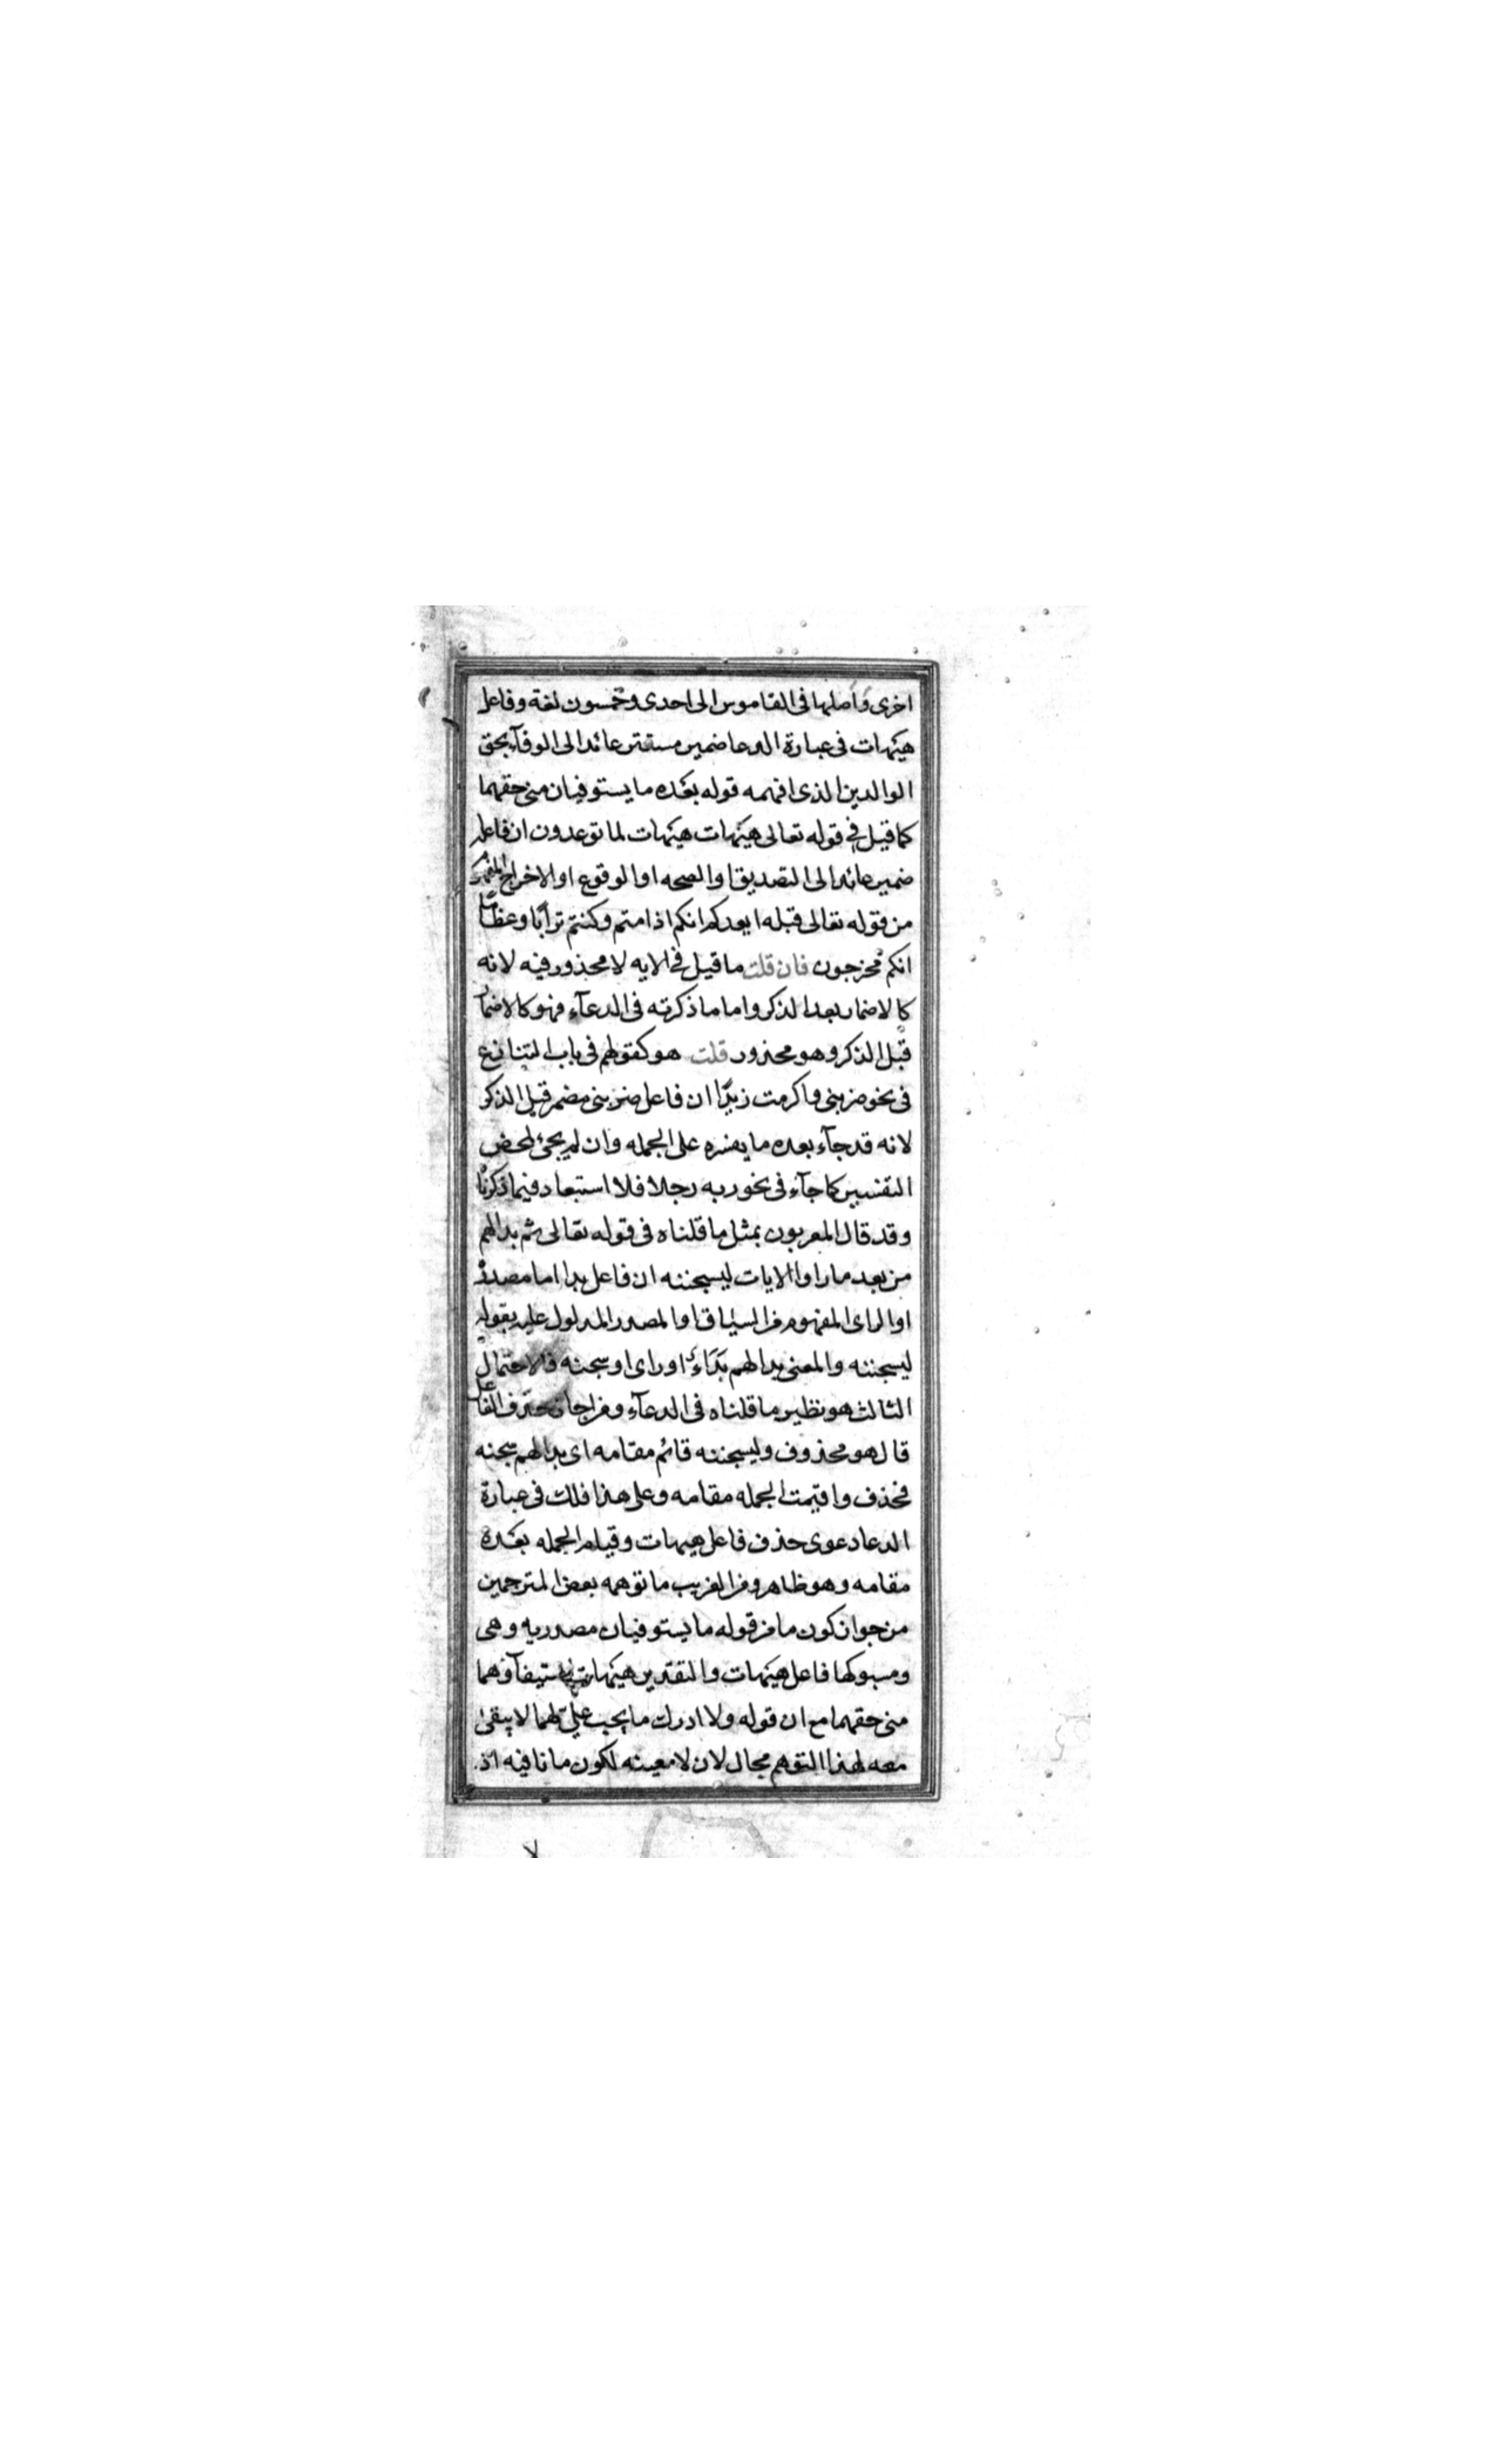 اخرى واصلها فى القاموس الى احدى وخمسون لغة وفاعل
هيهات فى عبارة الدعا ضمير مستتر عائد الى الوفآء بحق
الوالدين الذى افهمه قوله بعده ما يستوفيان منى حقهما
كما قيل فى قوله تعالى هيهات هيهات لما توعدون ان فاعله
ضمير عائد الى التصديق او الصحه او الوقوع او الاخراج المفهوم
من قوله تعالى قبله ايعدكم انكم اذا متم وكنتم ترابًا وعظامًا
انكم مخرجون فان قلت ما قيل فى الايه لا محذور فيه لانه
كالاضمار بعد الذكر واما ما ذكرته فى الدعآء فهو كالاضمار
قبل الذكر وهو محذور قلت هو كقولهم فى باب التنازع
فى نحو ضربنى واكرمت زيدًا ان فاعل ضربنى مضمر قبل الذكر
لانه قد جآء بعده ما يفسره على الجمله وان لم يجئ لمحض
التفسير كما جآء فى نحو ربه رجلا فلا استبعاد فيما ذكرنا
وقد قال المعربون بمثل ما قلناه فى قوله تعالى ثم بدا لهم
من بعد ما راوا الايات ليسجننه ان فاعل بدا اما مصدره
او الراى المفهوم من السياق او المصدر المدلول عليه بقوله
ليسجننه والمعنى بدا لهم بداء او راى او سجنه فالاحتمال
الثالث هو نظير ما قلناه فى الدعآء ومن اجاز حذف الفاعل
قال هو محذوف وليسجننه قائم مقامه اى بدا لهم سجنه
فحذف واقيمت الجمله مقامه وعلى هذا فلك فى عبارة
الدعا دعوى حذف فاعل هيهات وقيام الجمله بعده
مقامه وهو ظاهر ومن الغريب ما توهمه بعض المترجمين
من جواز كون ما من قوله ما يستوفيان مصدريه وهى
ومسبوكها فاعل هيهات والتقدير هيهات استيفآؤهما
منى حقهما مع ان قوله ولا ادرك ما يجب على لهما لا يبقى
معه لهذا التوهم مجال لان لا معينه لكون ما نافيه اذ
لا